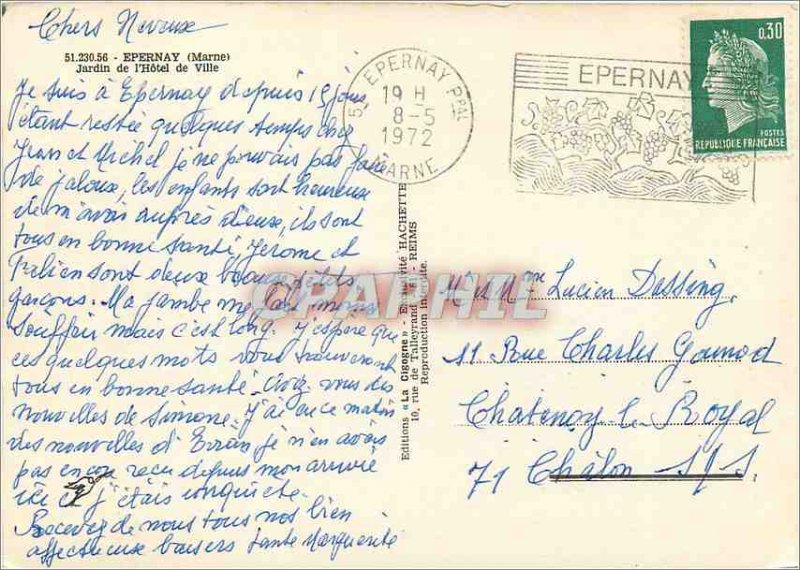 Chers Neveux
51.230.56 - EPERNAY (Marne)
Jardin de l'Hôtel de Ville
Je suis à Epernay depuis 15 jours
étant restée quelques temps chez
Jean et Michel je ne pouvais pas faire
de jaloux, les enfants sont heureux
de m'avoir auprès d'eux, ils sont
tous en bonne santé, Jerome et
sont deux petits
garçons. Ma jambe me fait moins
souffrir mais c'est long. J'espère que
ces quelques mots vous trouveront
tous en bonne santé. Avez vous des
nouvelles de Simone. J'ai eu ce matin
des nouvelles d' je n'en avais
pas encore reçu depuis mon arrivée
ici et j'étais inquiète.
Recevez de nous tous nos bien
affectueux baisers tante Marguerite
Editions « La Cigogne » - Exclusivité HACHETTE
10, rue de Talleyrand, 51 - REIMS
Reproduction interdite.
CPAPHIL
51 EPERNAY PPAL
19 H
8-5
1972
MARNE
EPERNAY
0,30
POSTES
REPUBLIQUE FRANÇAISE
Mr et Mme Lucien Dessing
11 Rue Charles Gounod
Chatenoy le Royal
71 Châlon S/S